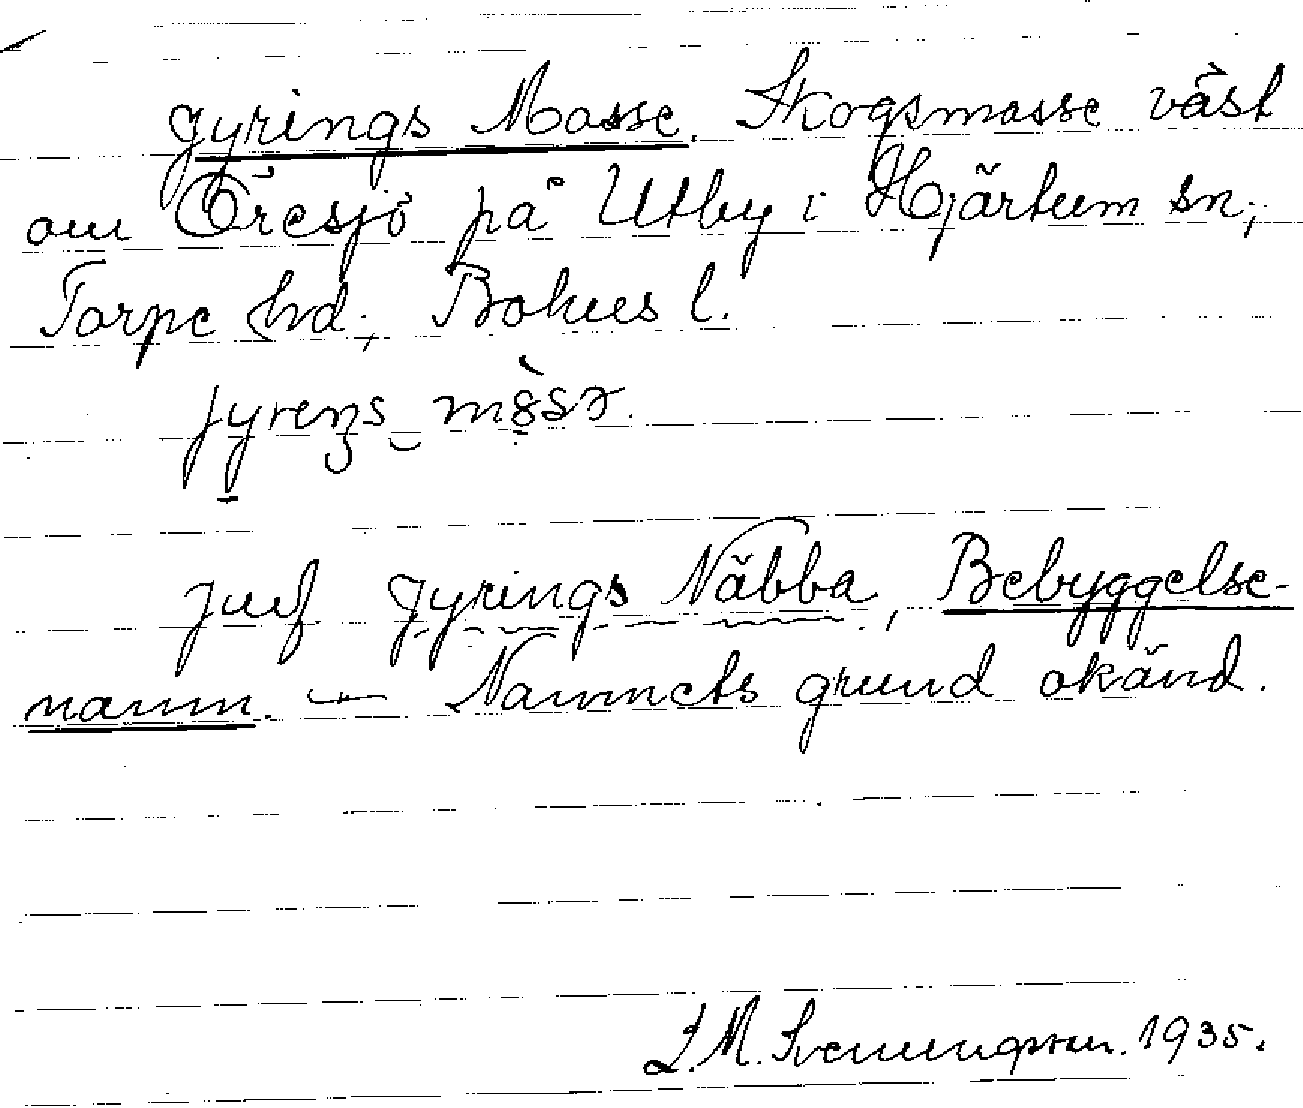 Jyrings Mosse. Skogsmosse väst
om Öresjö på Utby i Hjärtum sn,
Torpe hd, Bohus l.
jyreŋs mòsə.
Jmf Jyrings Näbba, Bebyggelse-
namn. — Namnets grund okänd.
J. M. Svenungsson. 1935.